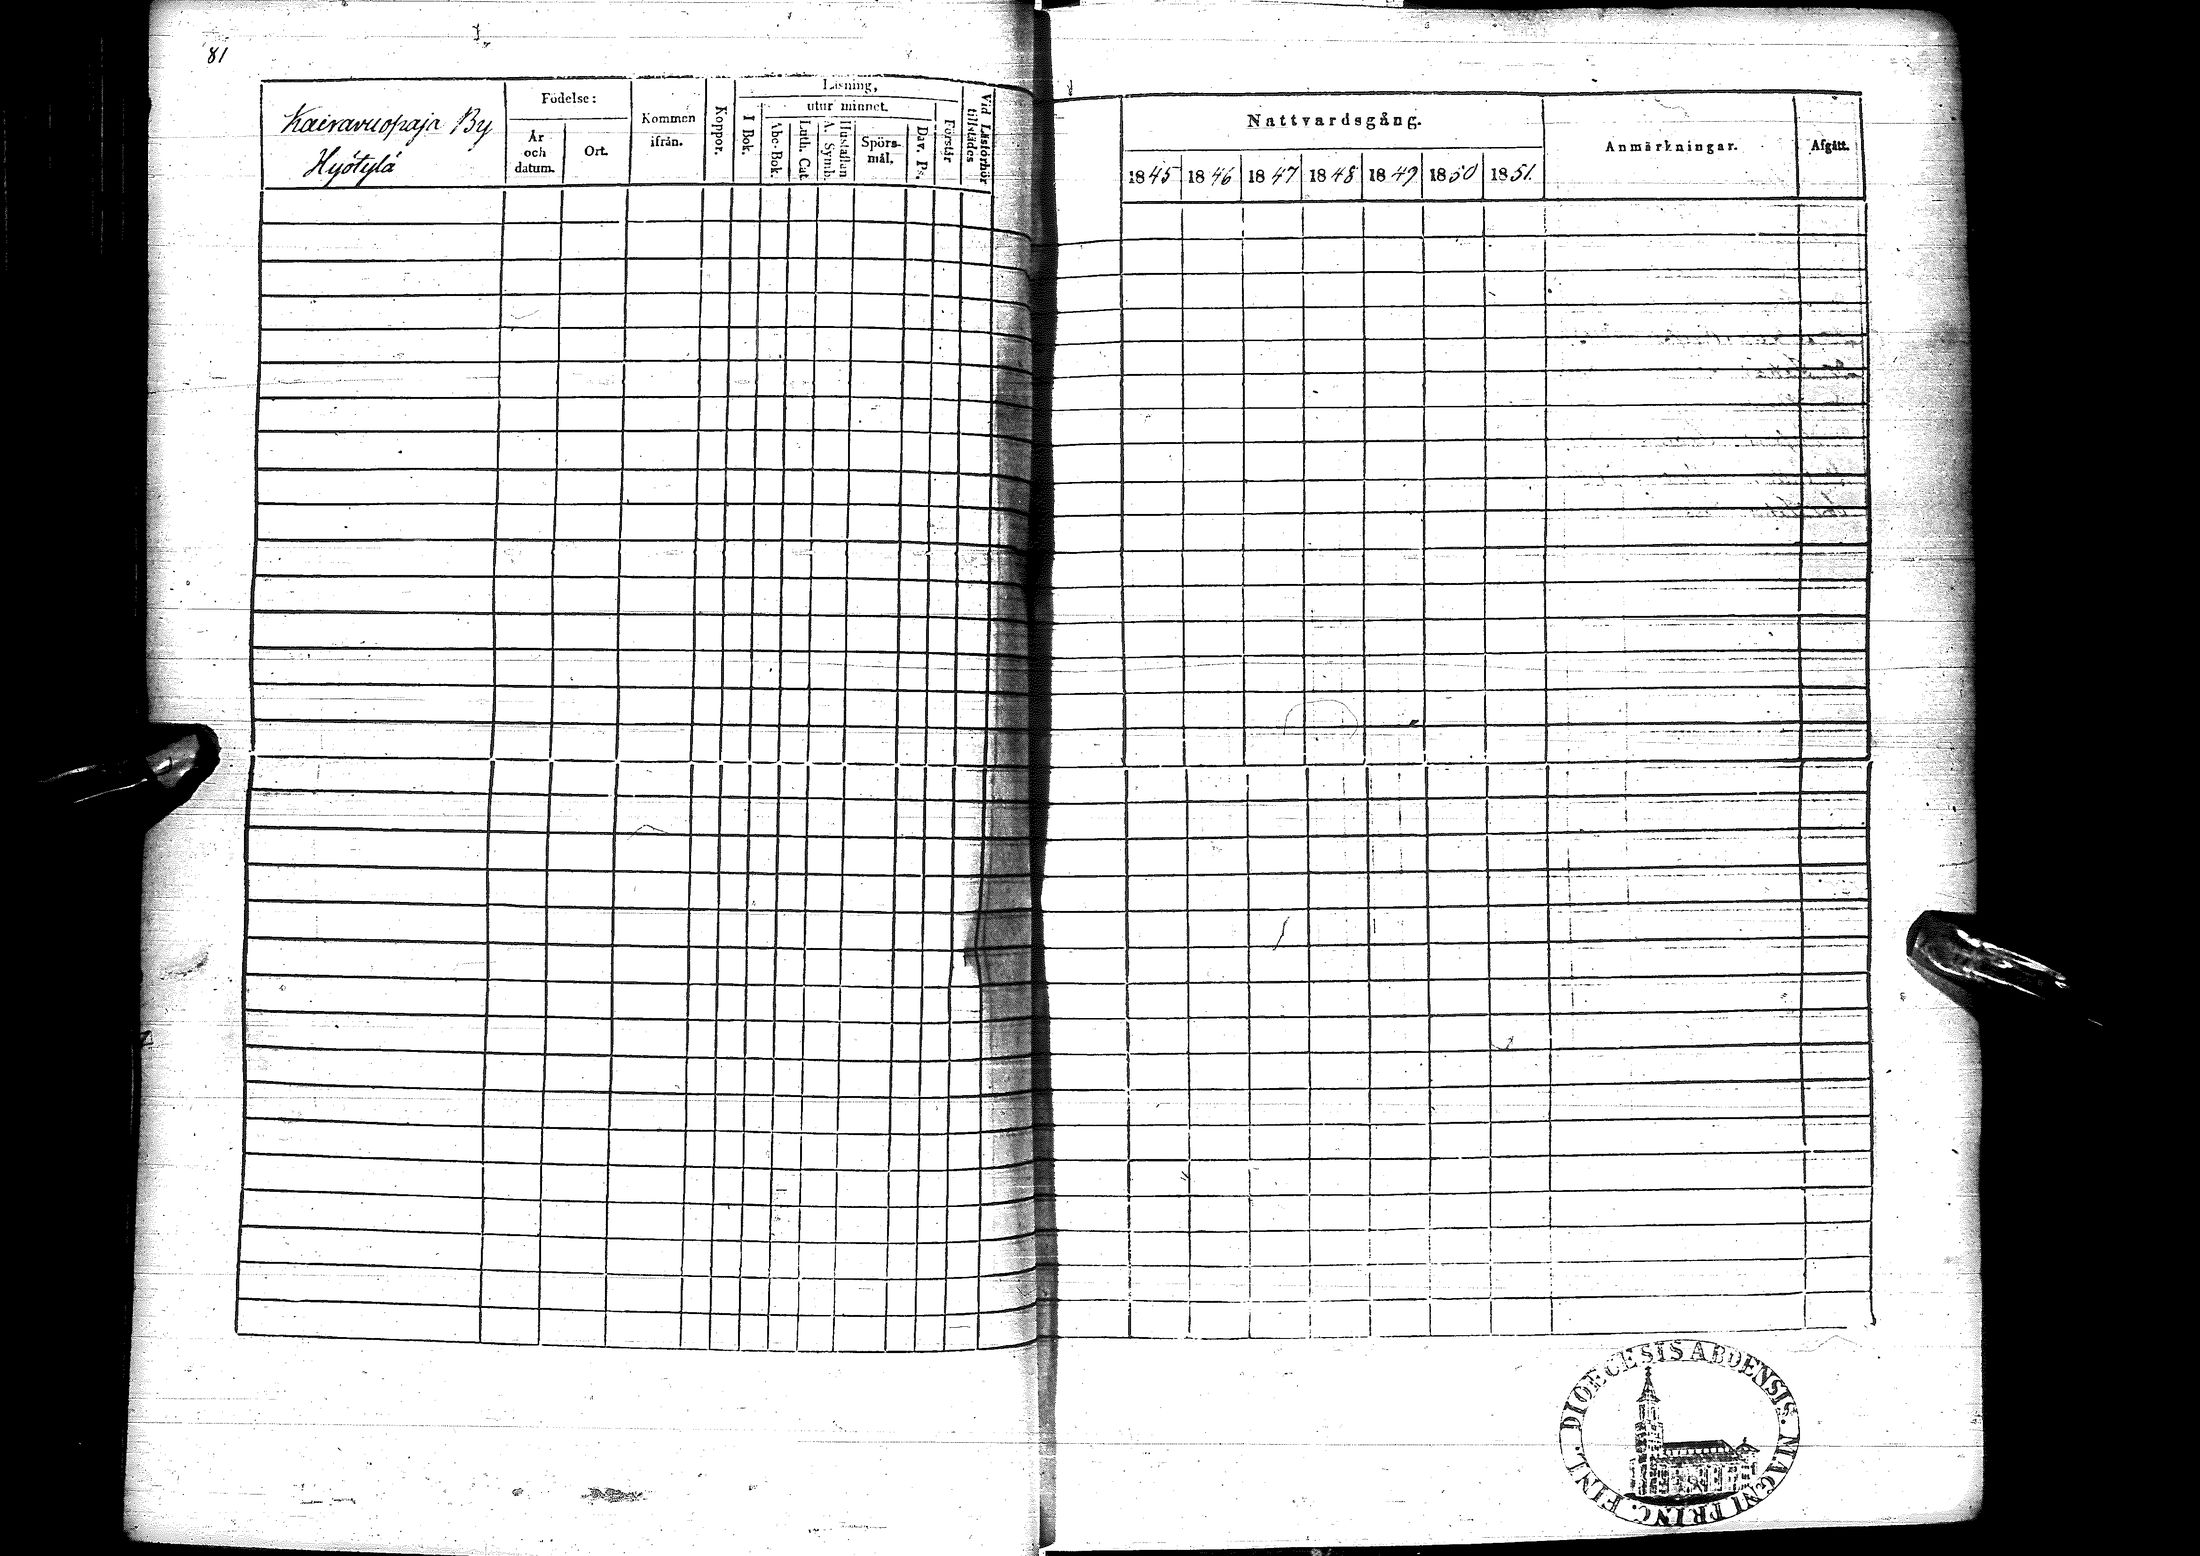 81
Kairavuopaja By
Hyötylä
Födelse:
År och datum.
Ort.
Kommen ifrån.
Koppor.
Läsning,
I Bok.
utur minnet.
Abc-Bok.
Luth. Cat.
A. Symb.
Hustaflan
Spörsmål.
Dav. Ps.
Förstår
Vid Läsförhör tillstädes
Nattvardsgång.
1845 1846 1847 1848 1849 1850 1851.
Anmärkningar.
Afgått.
DIOECESIS ABOENSIS. MAGNI PRINC. FINL.